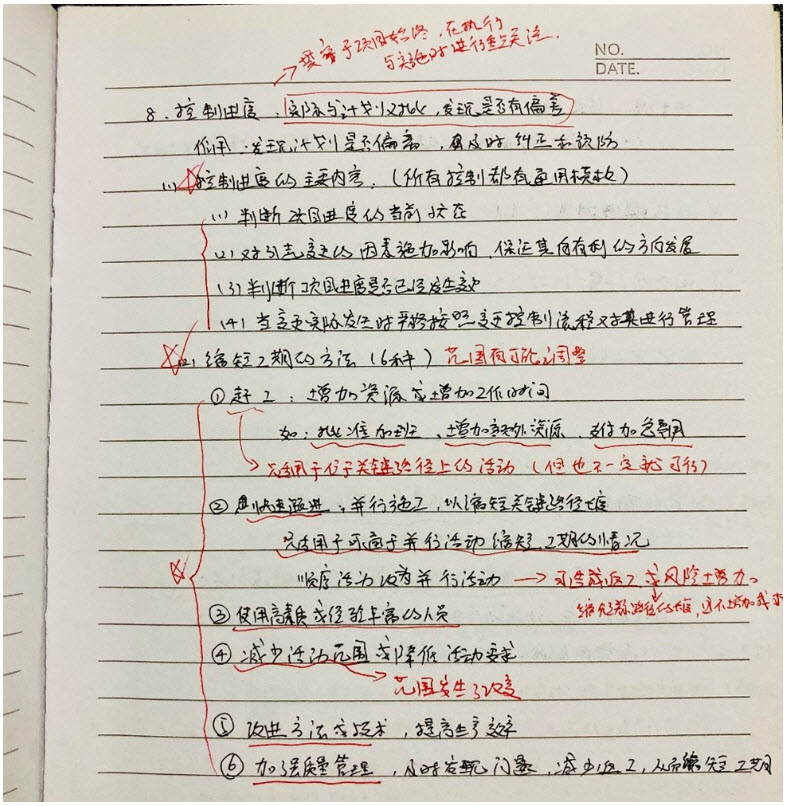 贯穿于项目始终，在执行
与实施时进行重点关注.
NO.
DATE.
8. 控制进度：实际与计划对比，发现是否有偏差
作用：发现计划是否偏离，及时纠正和预防
(1) 控制进度的主要内容：（所有控制都有通用模板）
(1) 判断项目进度的当前状态
(2) 对引起变更的因素施加影响，保证其向有利的方向发展
(3) 判断项目进度是否已经发生变更
(4) 当变更实际发生时严格按照变更控制流程对其进行管理
(2) 缩短工期的方法（6种）范围有可能调整
① 赶工：增加资源或增加工作时间
如：批准加班、增加额外资源、支付加急费用
只适用于位于关键路径上的活动（但也不一定就可行）
② 快速跟进：并行施工，以缩短关键路径长度
只适用于可适于并行活动缩短工期的情况
顺序活动改为并行活动 → 可造成返工或风险增加。
缩短关键路径的长度，还不增加成本
③ 使用高素质或经验丰富的人员
④ 减少活动范围或降低活动要求
范围发生了改变
⑤ 改进方法或技术，提高生产效率
⑥ 加强质量管理，及时发现问题，减少返工，从而缩短工期